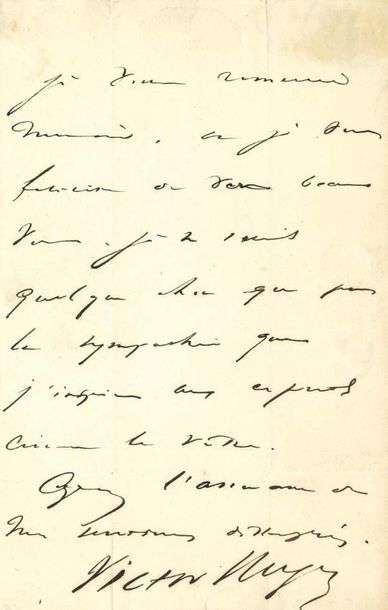 Je vous remercie
Monsieur, et je vous
félicite de vos beaux
vers. Je ne suis
quelque chose que par
la sympathie que
j'inspire aux esprits
comme le vôtre.
Agréez l'assurance de
mes sentiments distingués.
Victor Hugo